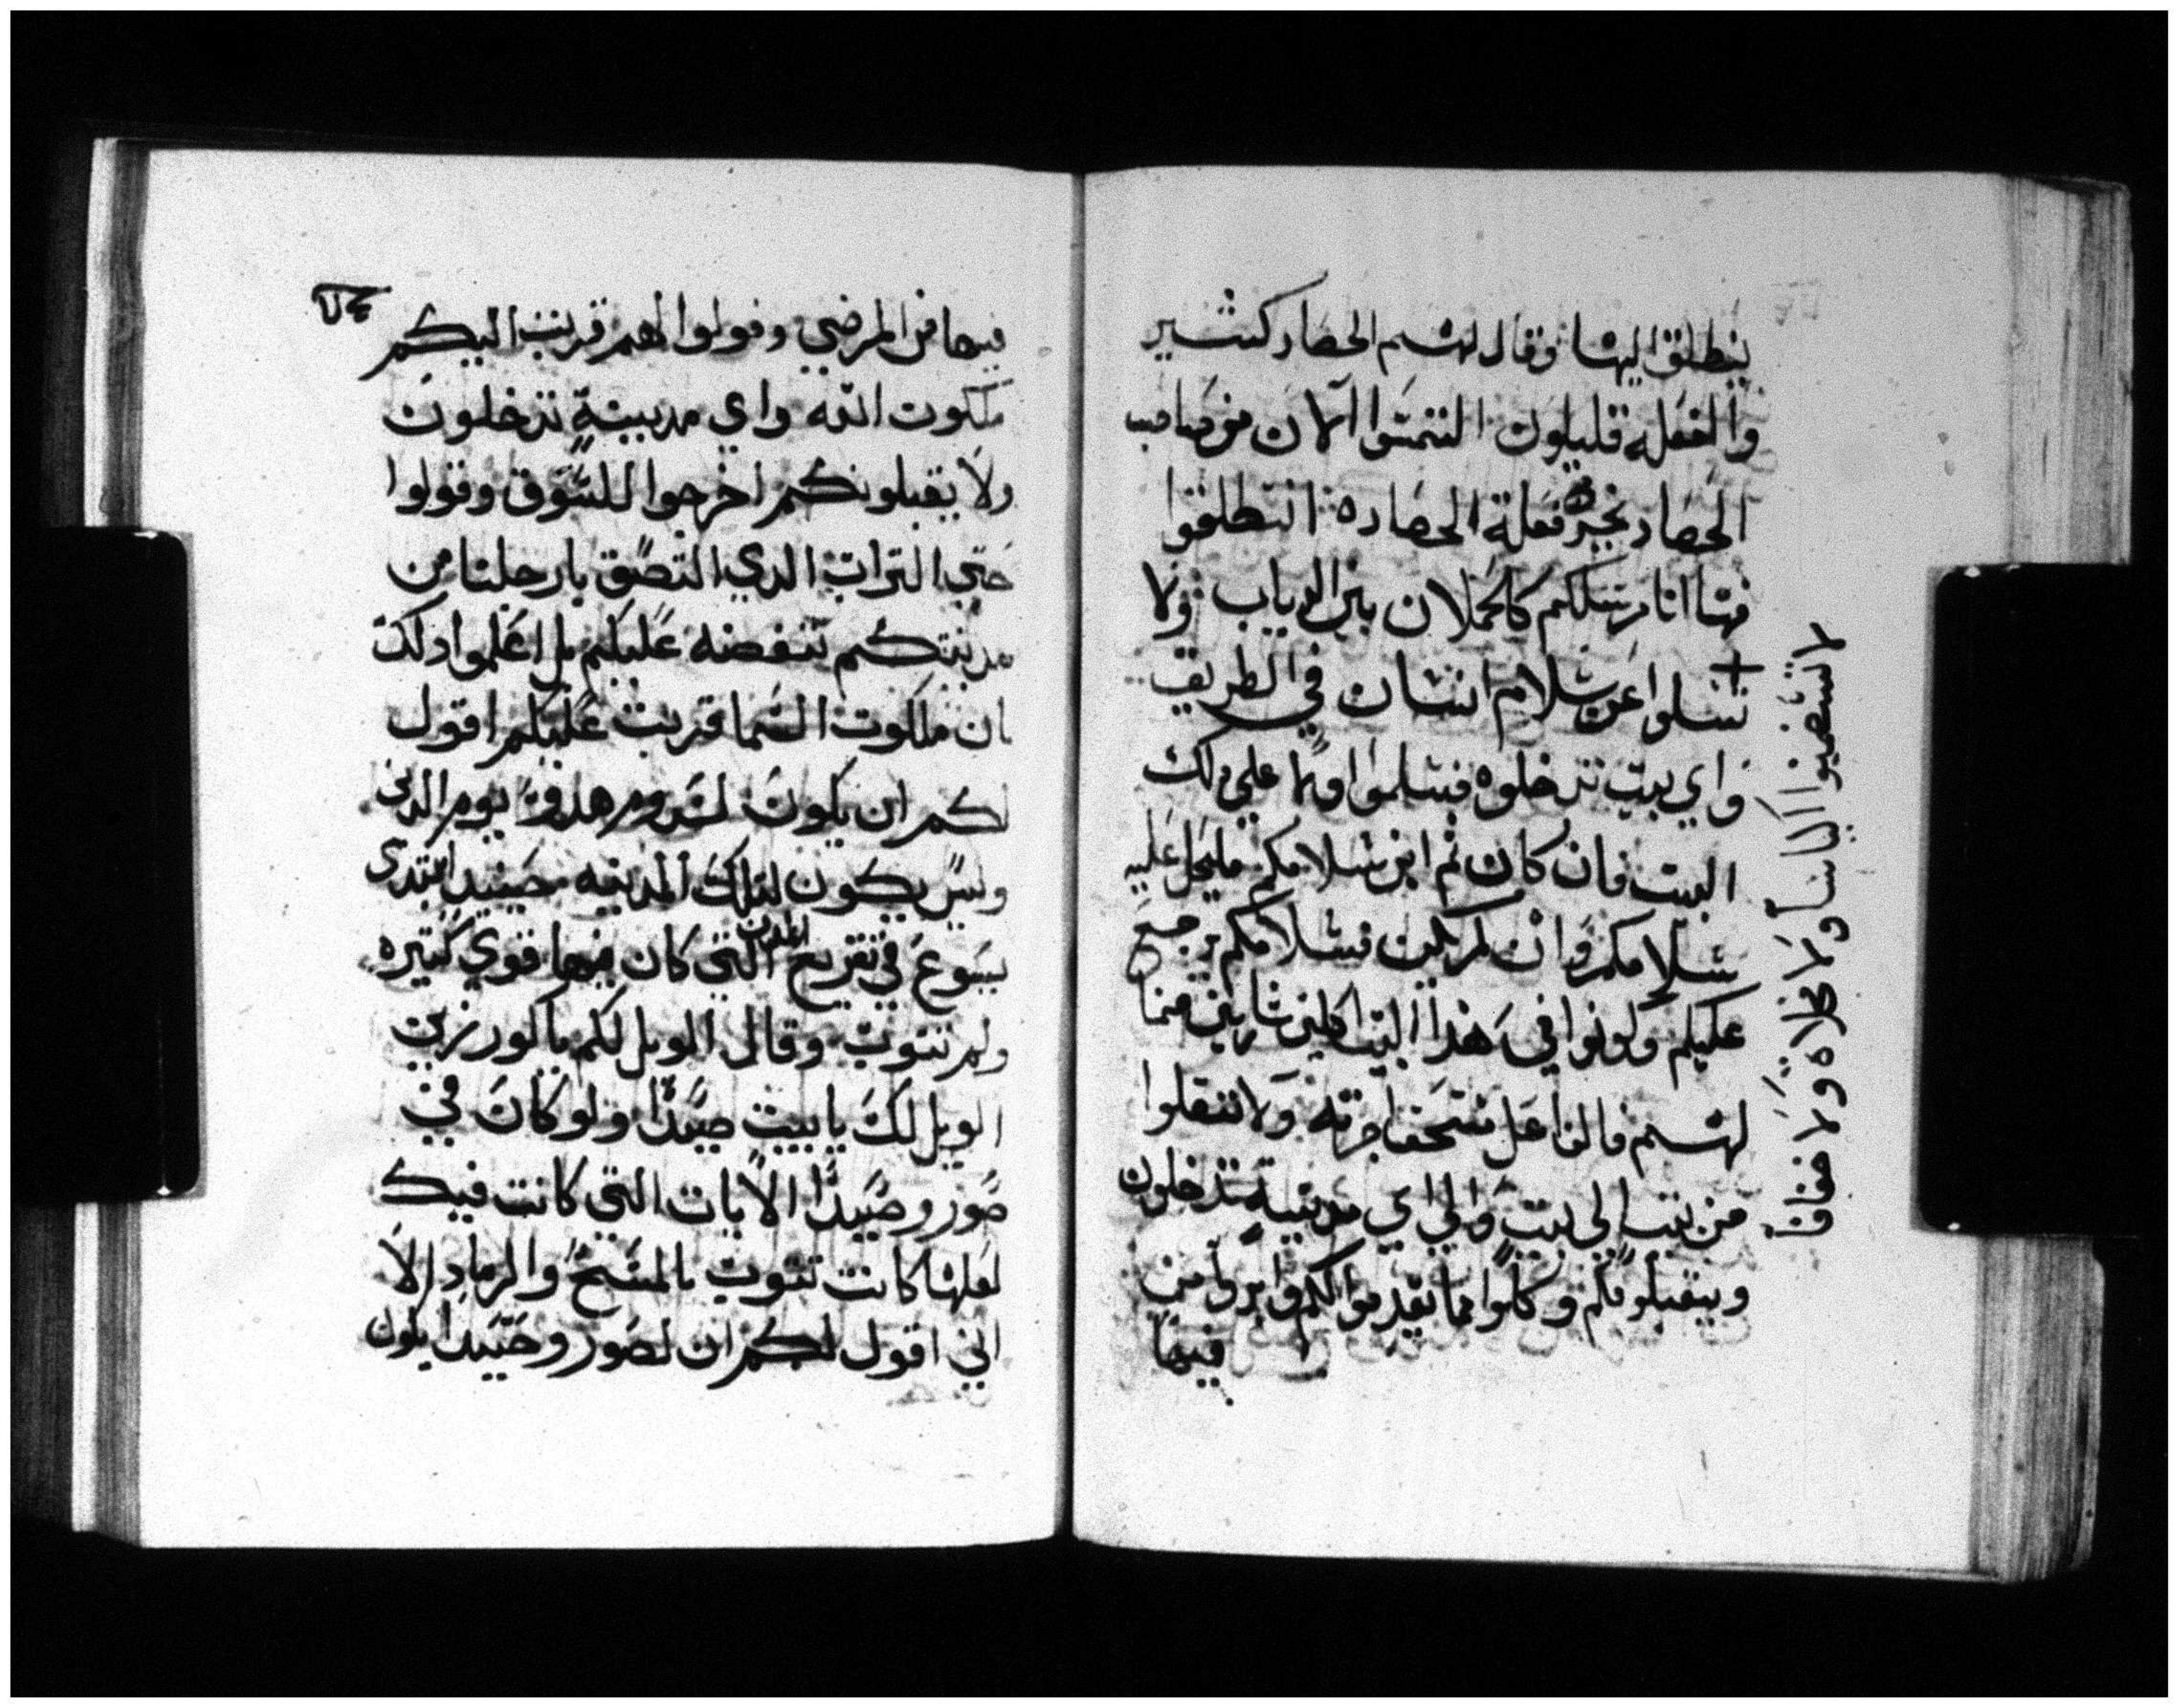 ينطلق اليها وقال لهم الحصاد كثير
والفعله قليلون التمسوا الان من صاحب
الحصاد يخرج فعلة الحصاده انطلقوا
فها انا مرسلكم كالحملان بين الدياب ولا
تسلوا عن سلام انسان في الطريق
واي بيت تدخلوه فسلموا اولا على دلك
البيت فان كان ثم ابن سلامكم فليحل عليه
سلامكم وان لم يكن فسلامكم يرجع
عليكم وكونوا في هذا البيت اكلين شاربين مما
لهم فالفاعل مستحق اجرته ولا تنتقلوا
من بيت الى بيت والى اي مدينة تدخلون
ويقبلونكم وكلوا مما يقدموا لكم وابروا من
فيها
لا تستصحبوا اكياسا ولا مخلاه ولا خفافا
فيها من المرضي وقولوا لهم قربت اليكم
ملكوت الله واي مدينة تدخلون
ولا يقبلونكم اخرجوا للسوق وقولوا
حتى التراب الدي التصق بارجلنا من
مدينتكم ننفضه عليكم بل اعلموا دلك
ان ملكوت السما قربت عليكم اقول
لكم ان يكون لسدوم هدو يوم الدين
وليس يكون لتلك المدينه حينيد ابتدى
يسوع في تقريع المدن التي كان فيها قوي كتيره
ولم تتوب وقال الويل لكم يا كورزين
الويل لك يا بيت صيدا ولو كان في
صور وصيدا الايات التي كانت فيك
لعلها كانت تتوب بالمسح والرماد الا
اني اقول لكم ان لصور وصيدا يكون